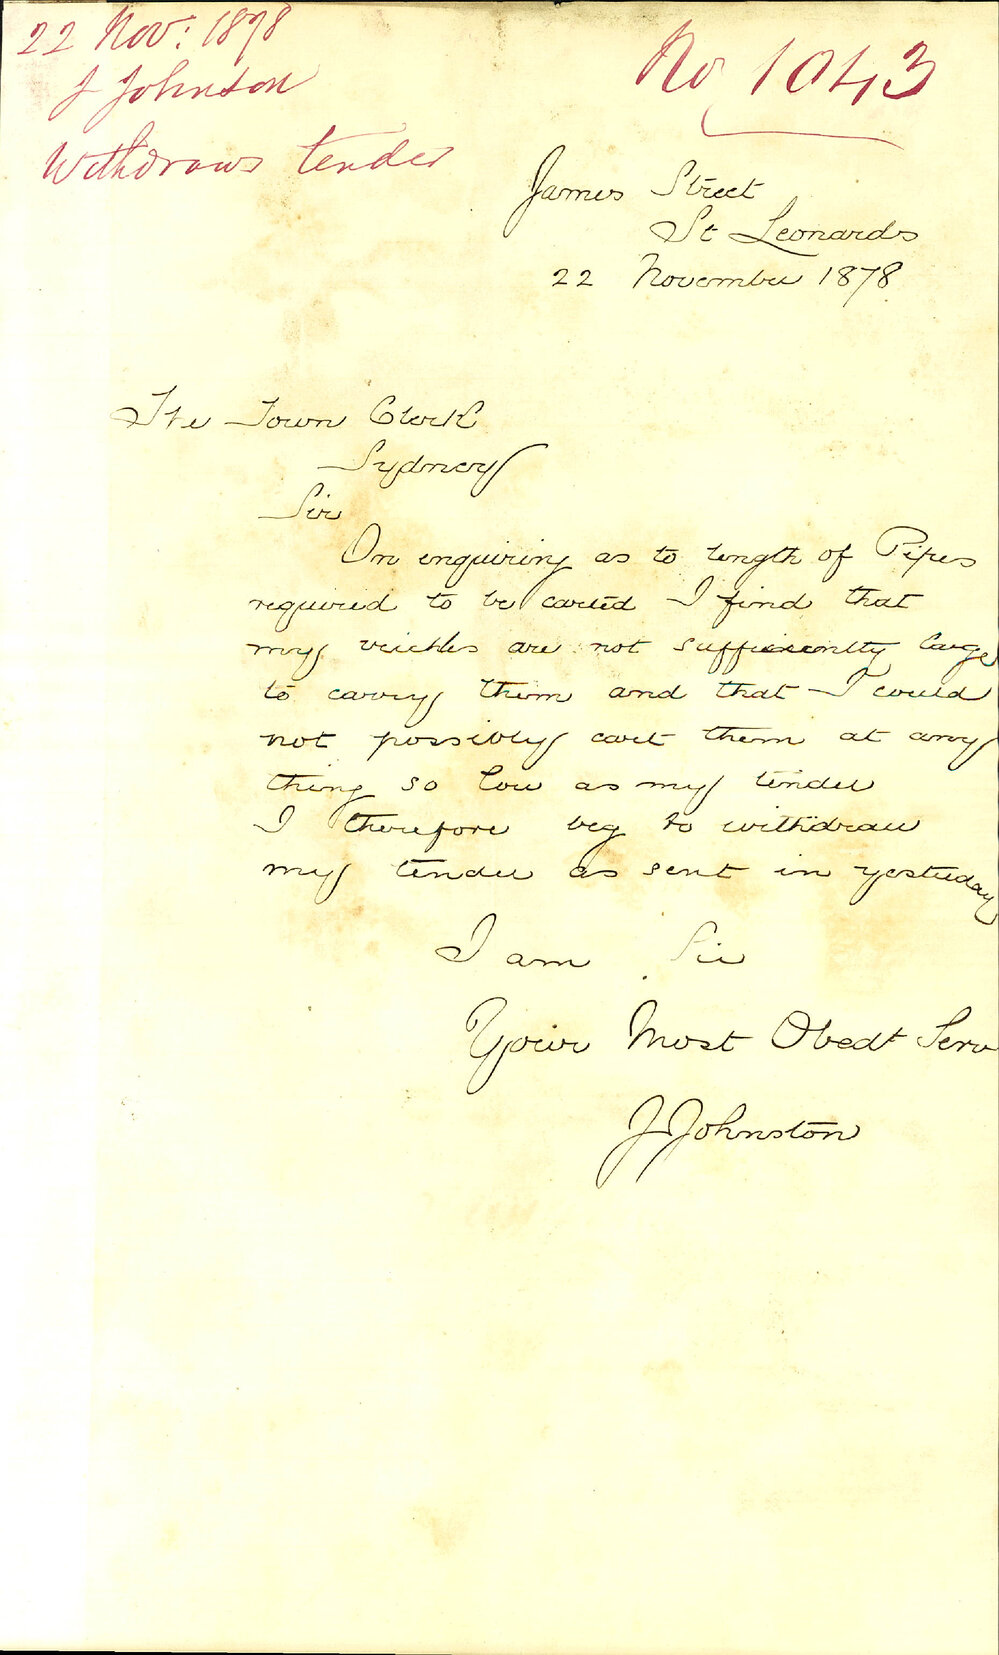 22 Nov: 1878
J Johnson
Withdraws tender
No 1043
James Street
St Leonards
22 November 1878
The Town Clerk
Sydney
Sir
On enquiring as to length of Pipes
required to be carted I find that
my veichles are not sufficiently large
to carry them and that I could
not possibly cart them at any
thing so low as my tender
I therefore beg to withdraw
my tender as sent in yesterday
I am Sir
Your Most Obedt Serv
J Johnston